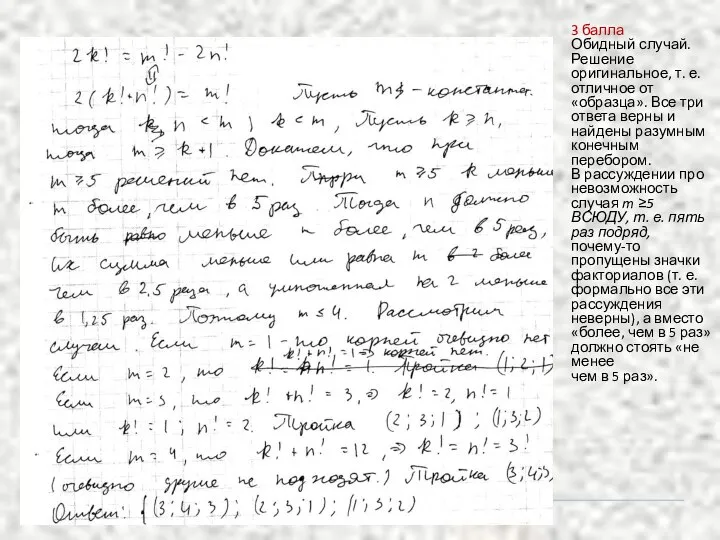 2k! = m! - 2n!
2(k!+n!) = m! Пусть m – константа.
тогда n < m, k < m, Пусть k ≥ n,
тогда m ≥ k+1. Докажем, что при
m ≥ 5 решений нет. При m ≥ 5 k меньше
m более, чем в 5 раз. Тогда n должно
быть меньше m более, чем в 5 раз,
их сумма меньше или равна m
чем в 2,5 раза, а умноженная на 2 меньше
в 1,25 раз. Поэтому m ≤ 4. Рассмотрим
случаи. Если m = 1 – то корней очевидно нет
Если m = 2, то k! + n! = 1 ⇒ корней нет.
Если m = 3, то k! + n! = 3, ⇒ k! = 2, n! = 1
или k! = 1; n! = 2. Тройка (2; 3; 1); (1; 3; 2)
Если m = 4, то k! + n! = 12, ⇒ k! = n! = 3!
(очевидно другие не подходят.) Тройка (3; 4; 3
Ответ: {(3; 4; 3); (2; 3; 1); (1; 3; 2)
3 балла
Обидный случай.
Решение
оригинальное, т. е.
отличное от
«образца». Все три
ответа верны и
найдены разумным
конечным
перебором.
В рассуждении про
невозможность
случая m ≥5
ВСЮДУ, т. е. пять
раз подряд,
почему-то
пропущены значки
факториалов (т. е.
формально все эти
рассуждения
неверны), а вместо
«более, чем в 5 раз»
должно стоять «не
менее
чем в 5 раз».